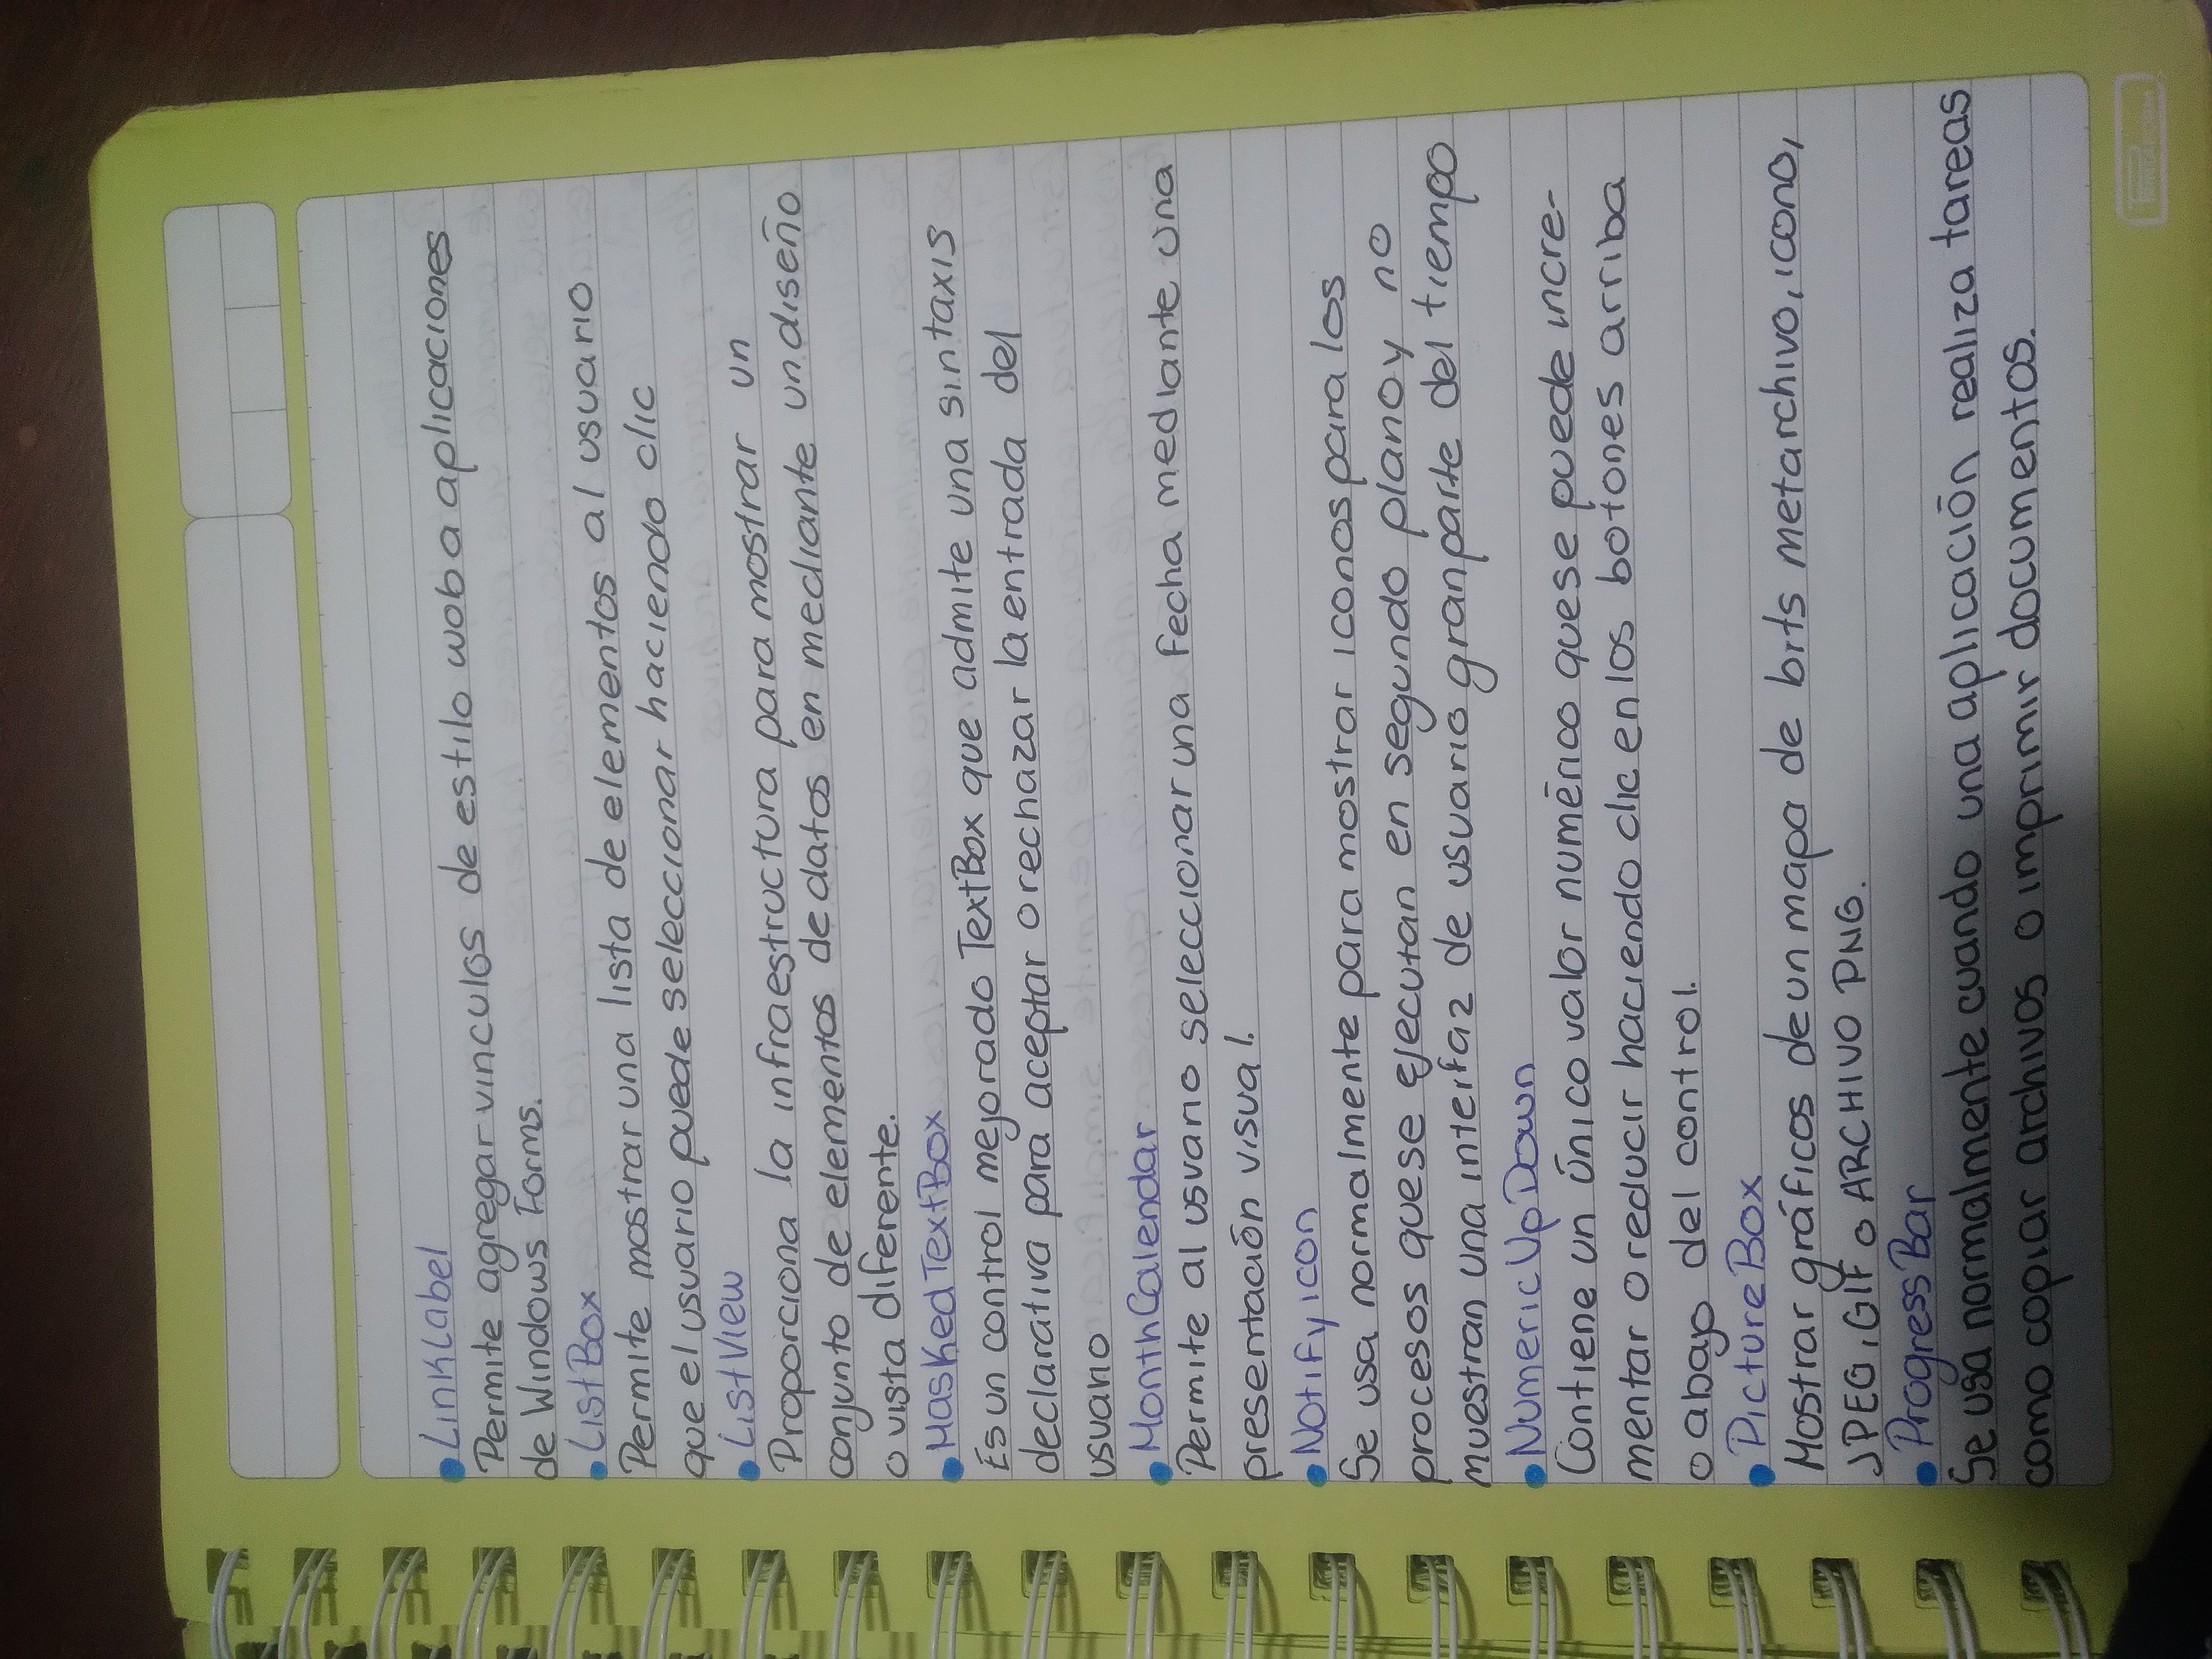 • LinkLabel
Permite agregar vinculos de estilo wob a aplicaciones
de Windows Forms.
• ListBox
Permite mostrar una lista de elementos al usuario
que el usuario puede seleccionar haciendo clic
• ListView
Proporciona la infraestructura para mostrar un
conjunto de elementos de datos en mediante un diseño
o vista diferente.
• MaskedTextBox
Es un control mejorado TextBox que admite una sintaxis
declarativa para aceptar o rechazar la entrada del
usuario
• MonthCalendar
Permite al usuario seleccionar una fecha mediante una
presentación visual.
• Notifyicon
Se usa normalmente para mostrar iconos para los
procesos que se ejecutan en segundo plano y no
muestran una interfaz de usuario gran parte del tiempo
• NumericUpDown
Contiene un único valor numérico que se puede incre-
mentar o reducir haciendo clic en los botones arriba
o abajo del control.
• PictureBox
Mostrar gráficos de un mapa de bits metarchivo, icono,
JPEG, GIF o ARCHIVO PNG.
• ProgressBar
Se usa normalmente cuando una aplicación realiza tareas
como copiar archivos o imprimir documentos.